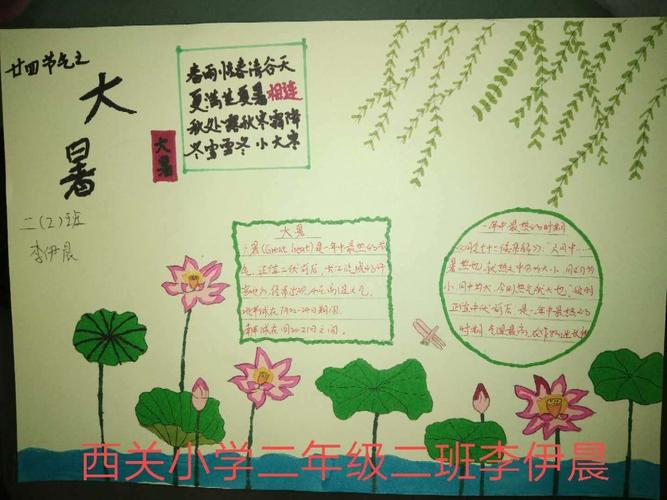 廿四节气之
大暑
二(2)班
李伊晨
春雨惊春清谷天
夏满芒夏暑相连
秋处露秋寒霜降
冬雪雪冬小大寒
大暑
大暑
大暑(Great heat)是一年中最热的节
气,正值二伏前后,长江流域的许
多地方,经常出现40度高温天气。
北半球在7月22-24日期间,
南半球在1月20-21日之间。
一年中最热的时期
暑热也,就热之中分为大小,月初为
小,月中为大,今则热气犹大也。这时
正值中伏前后,是一年中最热的
西关小学二年级二班李伊晨